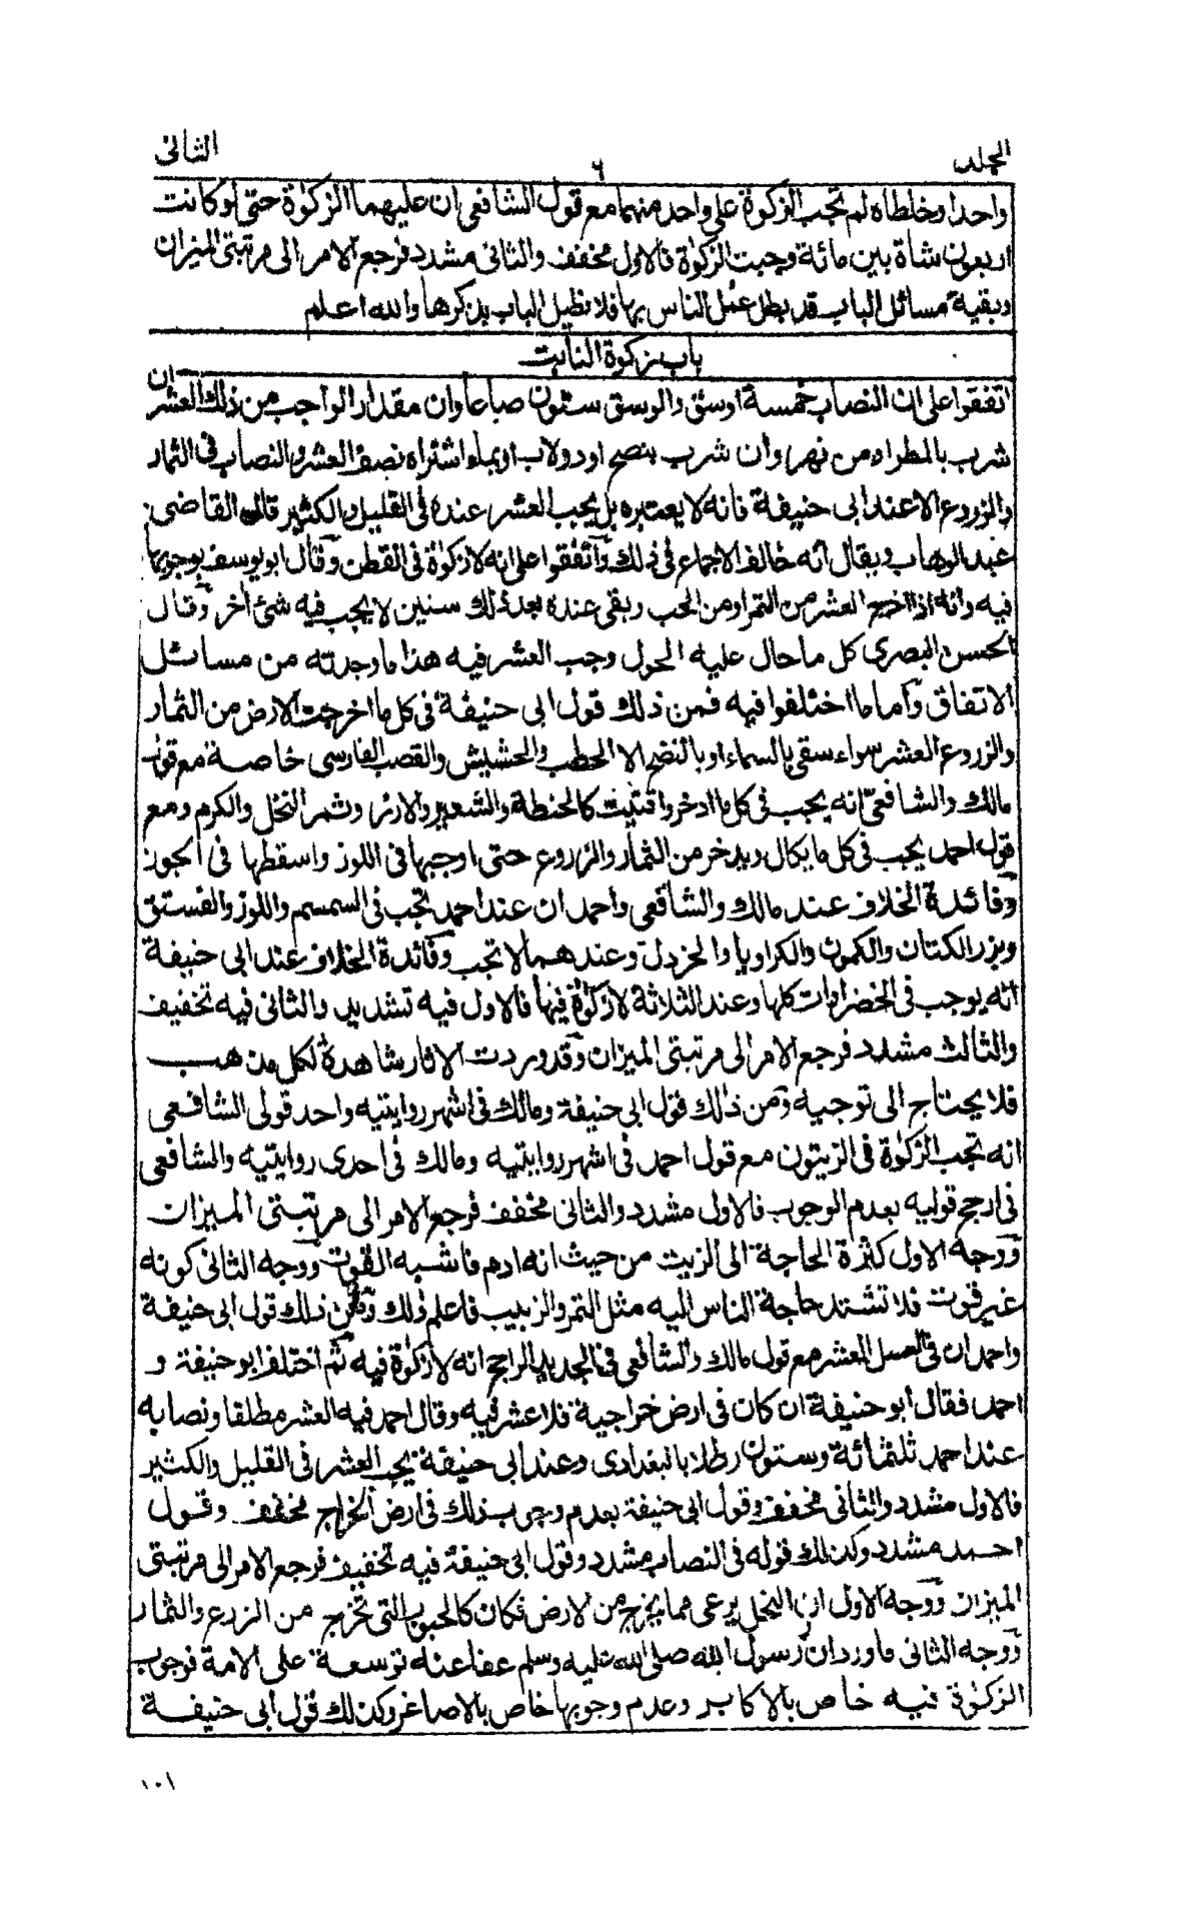 المجلد
٦
الثانى
واحدا وخلطاه لم تجب الزكوة على واحد منهما مع قول الشافعى ان عليهما الزكوة حتى لو كانت
اربعون شاة بين مائة وجبت الزكوة فالاول مخفف والثانى مشدد فرجع الامر الى مرتبتى الميزان
وبقية مسائل الباب قد بطل عمل الناس بها فلا نطيل الباب بذكرها والله اعلم
باب زكوة النابت
اتفقوا على ان النصاب خمسة اوسق والوسق ستون صاعا وان مقدار الواجب من ذلك العشر ان
شرب بالمطر او من نهر وان شرب بنضح او دولاب او بماء اشتراه نصف العشر والنصاب فى الثمار
والزروع الا عند ابى حنيفة فانه لا يعتبره بل يجب العشر عنده فى القليل والكثير قال القاضى
عبد الوهاب ويقال انه خالف الاجماع فى ذلك واتفقوا على انه لا زكوة فى القطن وقال ابو يوسف بوجوبها
فيه وانه اذا اخرج العشر من التمر او من الحب وبقى عنده بعد ذلك سنين لا يجب فيه شئ اخر وقال
الحسن البصرى كل ما حال عليه الحول وجب العشر فيه هذا ما وجدته من مسائل
الاتفاق وآما ما اختلفوا فيه فمن ذلك قول ابى حنيفة فى كل ما اخرجت الارض من الثمار
والزروع العشر سواء سقى بالسماء او بالنضح الا الحطب والحشيش والقصب الفارسى خاصة مع قول
مالك والشافعى انه يجب فى كل ما ادخر واقتيت كالحنطة والشعير والارز وثمر النخل والكرم ومع
قول احمد يجب فى كل ما يكال ويدخر من الثمار والزروع حتى اوجبها فى اللوز واسقطها فى الجوز
وفائدة الخلاف عند مالك والشافعى واحمد ان عند احمد تجب فى السمسم واللوز والفستق
وبزر الكتان والكمون والكراويا والخردل وعندهما لا تجب وفائدة الخلاف عند ابى حنيفة
انه يوجب فى الخضراوات كلها وعند الثلاثة لا زكوة فيها فالاول فيه تشديد والثانى فيه تخفيف
والثالث مشدد فرجع الامر الى مرتبتى الميزان وقد وردت الاثار شاهدة لكل مذهب
فلا يحتاج الى توجيه ومن ذلك قول ابى حنيفة ومالك فى اشهر روايتيه واحد قولى الشافعى
انه تجب الزكوة فى الزيتون مع قول احمد فى اشهر روايتيه ومالك فى احدى روايتيه والشافعى
فى ارجح قوليه بعدم الوجوب فالاول مشدد والثانى مخفف فرجع الامر الى مرتبتى الميزان
ووجه الاول كثرة الحاجة الى الزيت من حيث انه ادم فاشبه القوت ووجه الثانى كونه
غير قوت فلا تشتد حاجة الناس اليه مثل التمر والزبيب فاعلم ذلك ومن ذلك قول ابى حنيفة
واحمد ان فى العسل العشر مع قول مالك والشافعى فى الجديد الراجح انه لا زكوة فيه ثم اختلف ابو حنيفة و
احمد فقال ابو حنيفة ان كان فى ارض خراجية فلا عشر فيه وقال احمد فيه العشر مطلقا ونصابه
عند احمد ثلثمائة وستون رطلا بالبغدادى وعند ابى حنيفة يجب العشر فى القليل والكثير
فالاول مشدد والثانى مخفف وقول ابى حنيفة بعدم وجوب ذلك فى ارض الخراج مخفف وقول
احمد مشدد وكذلك قوله فى النصاب مشدد وقول ابى حنيفة فيه تخفيف فرجع الامر الى مرتبتى
الميزان ووجه الاول ان النحل يرعى مما يخرج من الارض فكان كالحبوب التى تخرج من الزرع والثمار
ووجه الثانى ما ورد ان رسول الله صلى الله عليه وسلم عفا عنه توسعة على الامة فوجوب
الزكوة فيه خاص بالاكابر وعدم وجوبها خاص بالاصاغر وكذلك قول ابى حنيفة
١٠١